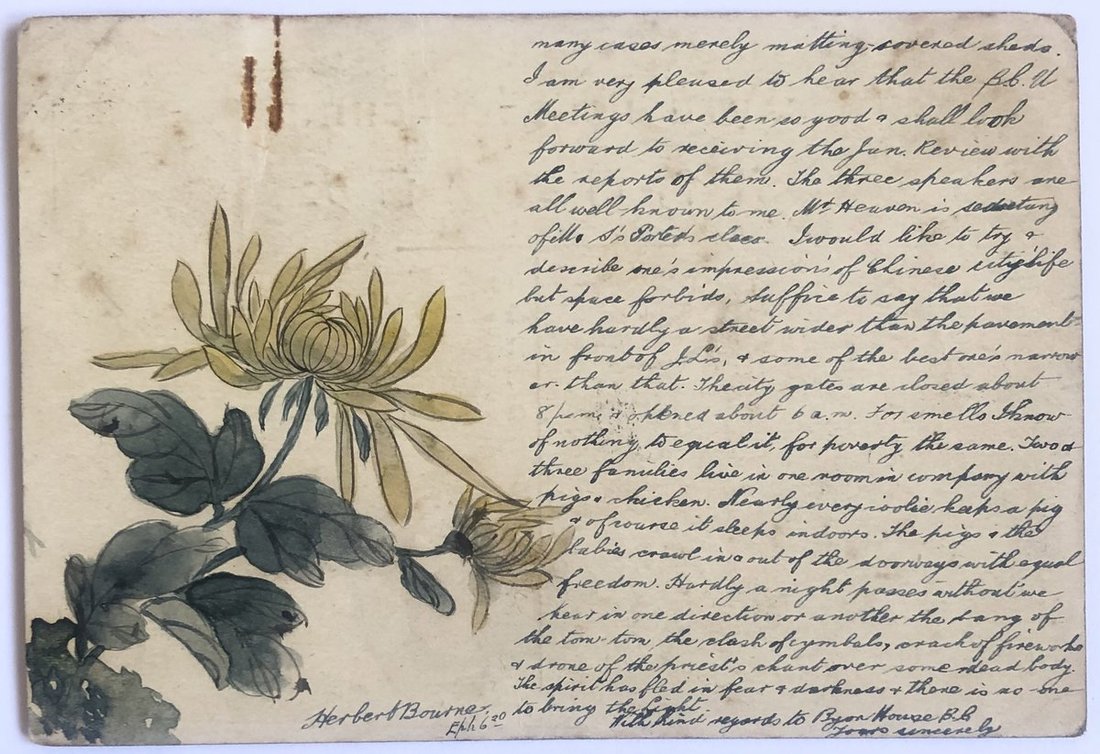 many cases merely matting-covered sheds.
I am very pleased to hear that the B.C. U
Meetings have been so good & shall look
forward to receiving the Jan. Review with
the reports of them. The three speakers are
all well known to me. Mr Heaven is
of Porter's class. I would like to try &
describe one's impression's of Chinese city life
but space forbids, suffice to say that we
have hardly a street wider than the pavement
in front of & some of the best one's narrow
er than that. The city gates are closed about
8 p.m. & opened about 6 a.m. For smells I know
of nothing to equal it, for poverty the same. Two or
three families live in one room in company with
pigs & chicken. Nearly every coolie keeps a pig
& of course it sleeps indoors. The pigs & the
babies crawl in & out of the doorways with equal
freedom. Hardly a night passes without we
hear in one direction or another the bang of
the tom-tom the clash of cymbals, crack of fireworks
& drone of the priest's chant over some dead body.
The spirit has fled in fear & darkness & there is no one
to bring the Light.
With kind regards to House B.C
Yours sincerely
Herbert Bourne.
Eph 6 20